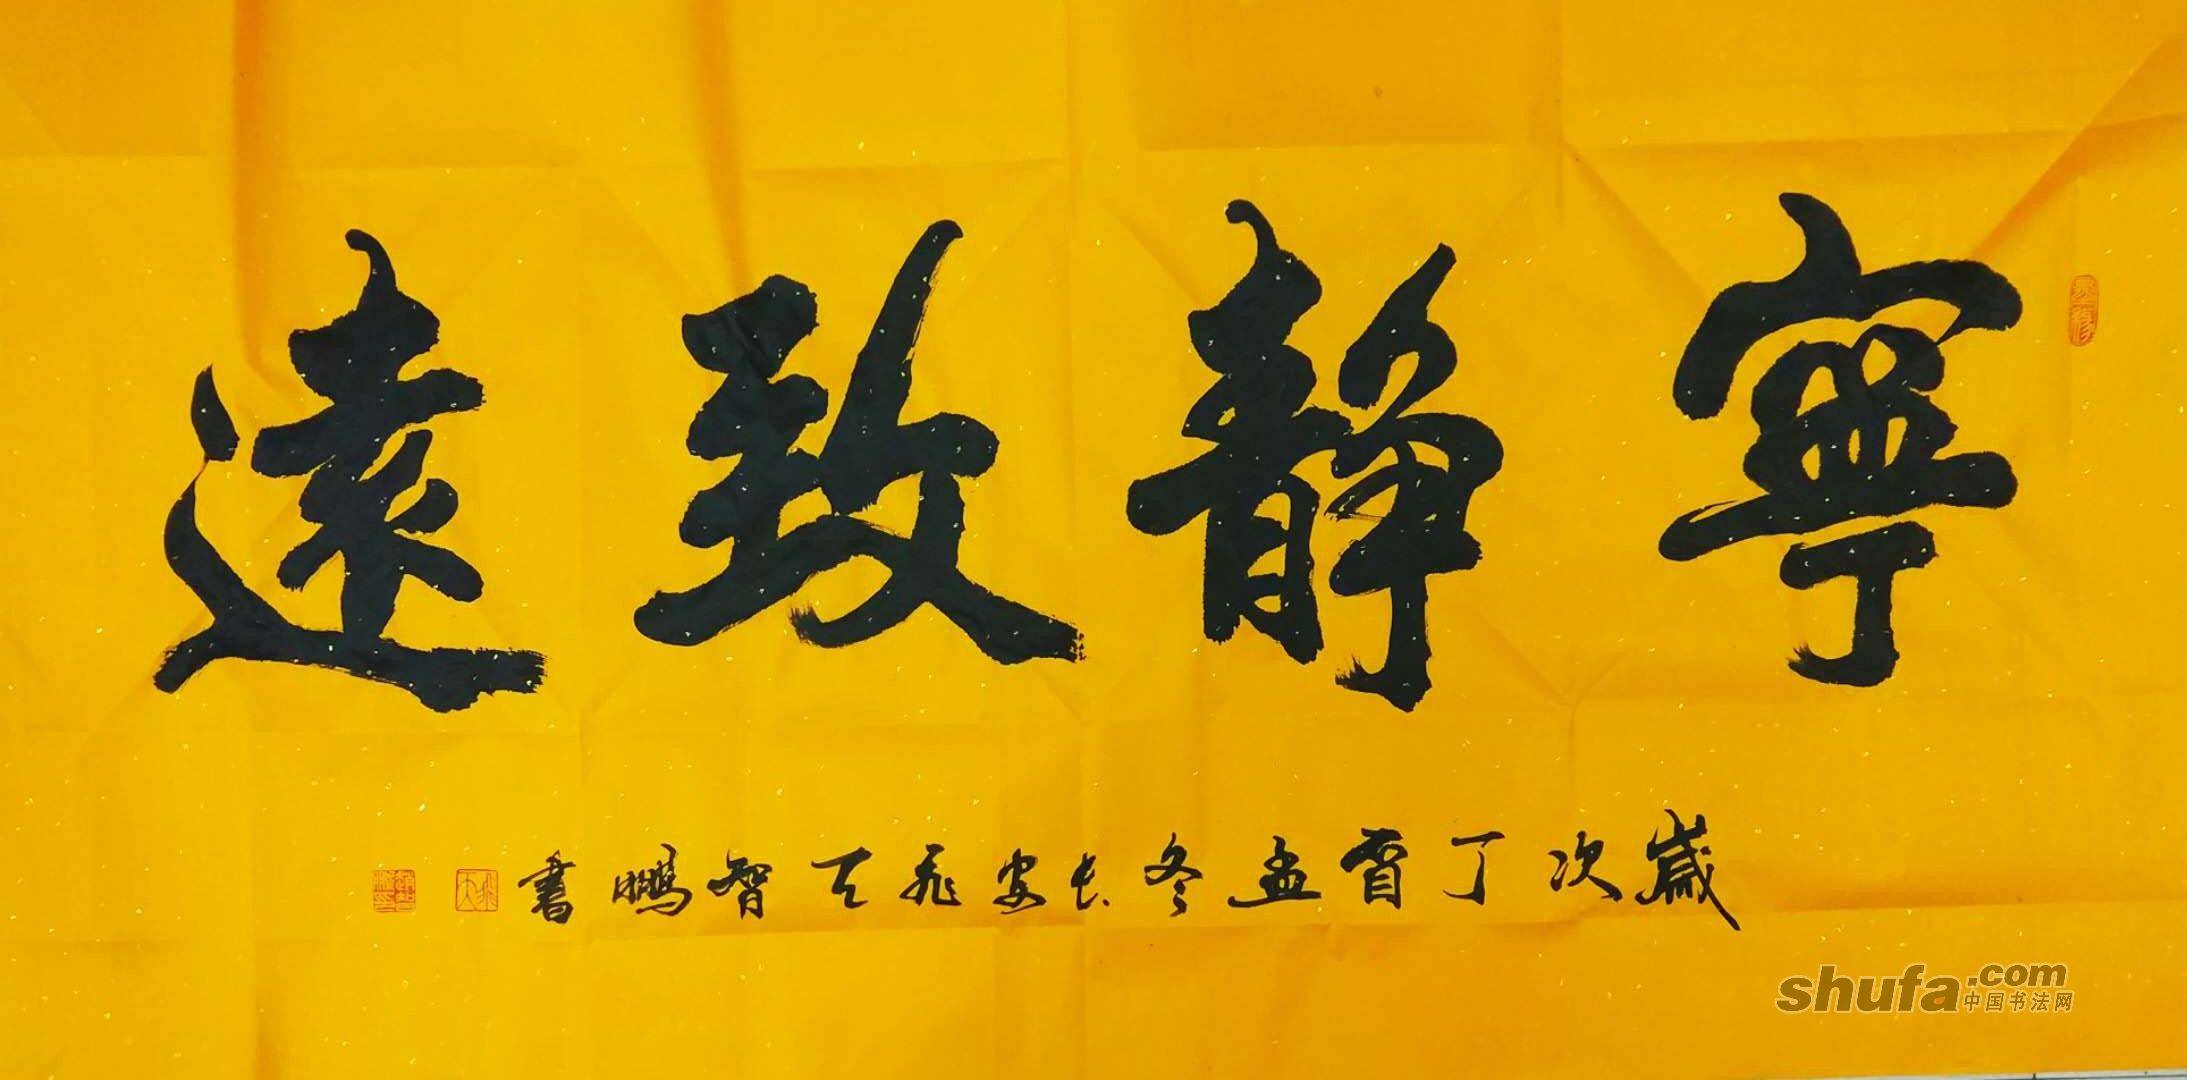 寧靜致遠
歲次丁酉孟冬長安飛天智鵬書
shufa.com
中国书法网